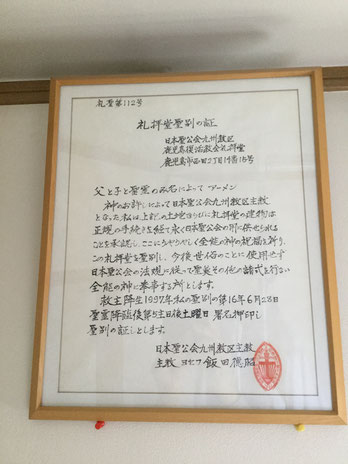 礼聖第112号
礼拝堂聖別の証
日本聖公会九州教区
鹿児島復活教会礼拝堂
鹿児島市西田2丁目14番15号
父と子と聖霊のみ名によって アーメン
神のお許しによって日本聖公会九州教区主教
となった私は上記の土地ならびに礼拝堂の建物は
正規の手続きを経て永く日本聖公会の用に供せられる
ことを承認し、ここにうやうやしく全能の神の祝福を祈り、
この礼拝堂を聖別し、今後世俗のことに使用せず
日本聖公会の法規に従って聖奠その他の諸式を行ない
全能の神に奉事する所とします。
救主降生1997年私の聖別の第16年6月28日
聖霊降臨後第5主日後土曜日 署名捺印し
聖別の証とします。
日本聖公会九州教区主教
主教 ヨセフ 飯田徳昭